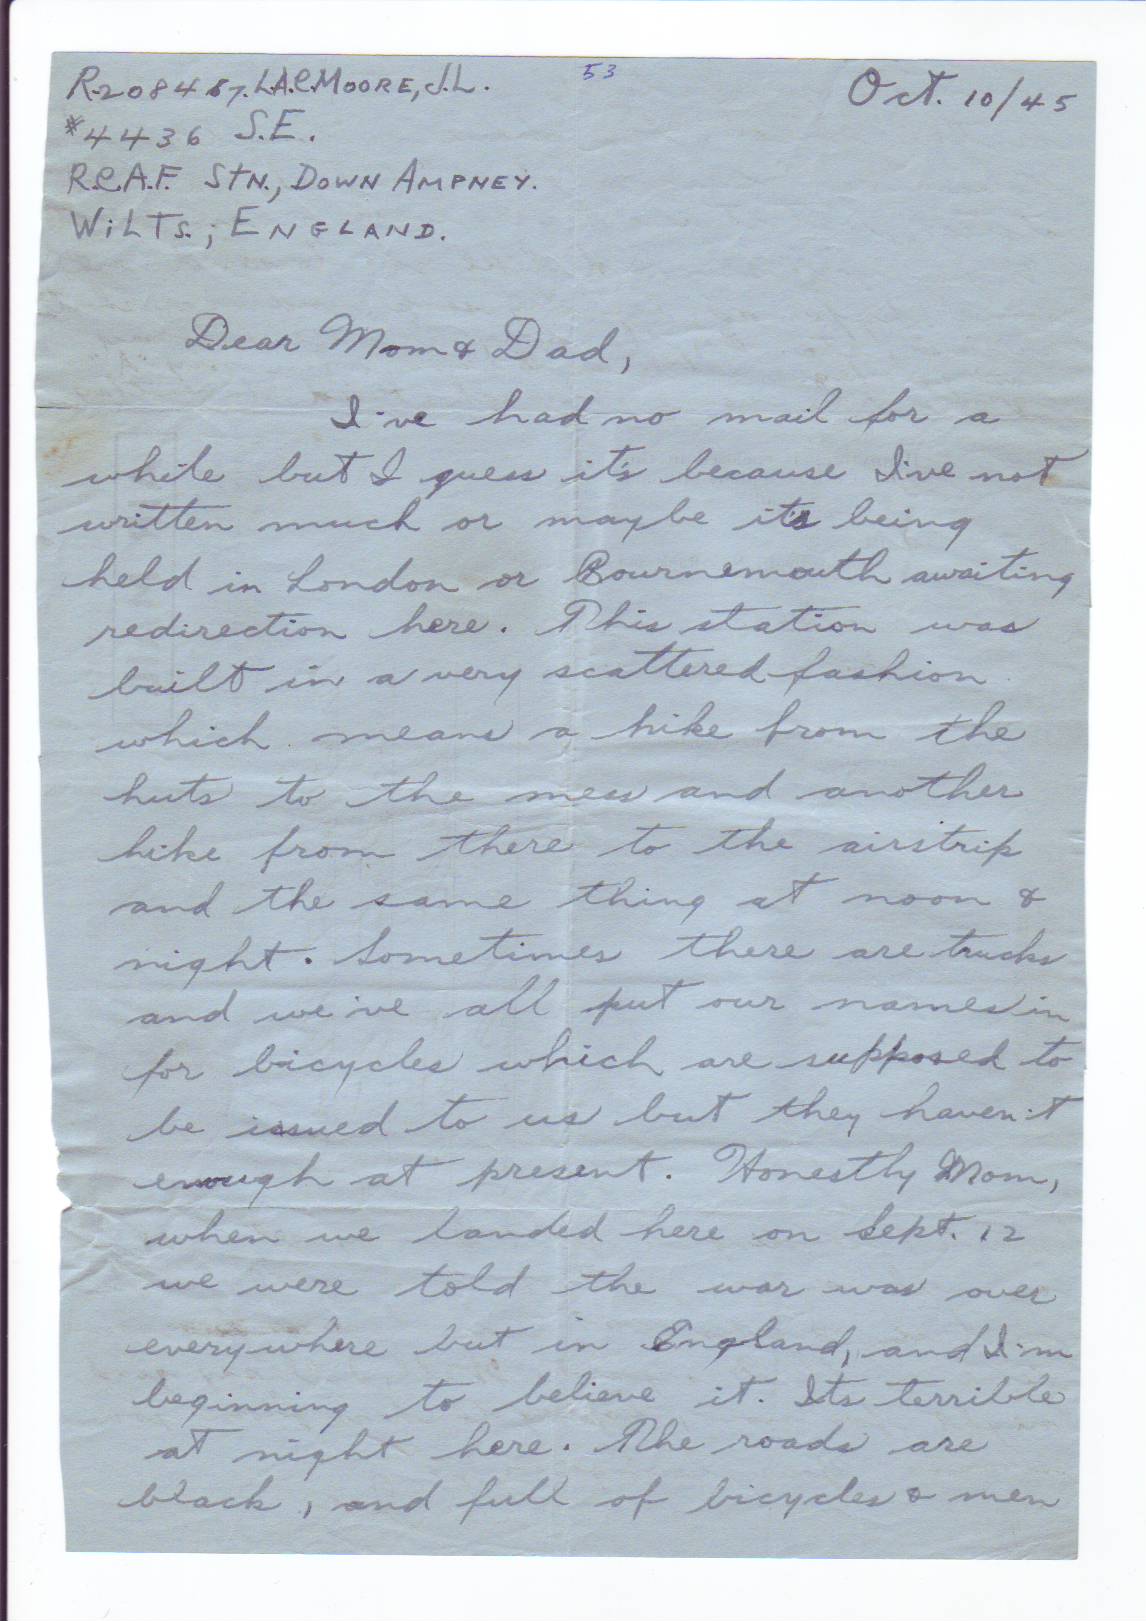 53
R.208467. L.A.C. MOORE, J.L.
Oct. 10/45
#4436 S.E.
R.C.A.F. STN., DOWN AMPNEY.
WILTS.; ENGLAND.
Dear Mom & Dad,
I've had no mail for a
while but I guess it's because I've not
written much or maybe it's being
held in London or Bournemouth awaiting
redirection here. This station was
built in a very scattered fashion
which means a hike from the
huts to the mess and another
hike from there to the airstrip
and the same thing at noon &
night. Sometimes there are trucks
and we've all put our names in
for bicycles which are supposed to
be issued to us but they haven't
enough at present. Honestly Mom,
when we landed here on Sept. 12
we were told the war was over
everywhere but in England, and I'm
beginning to believe it. Its terrible
at night here. The roads are
black, and full of bicycles & men